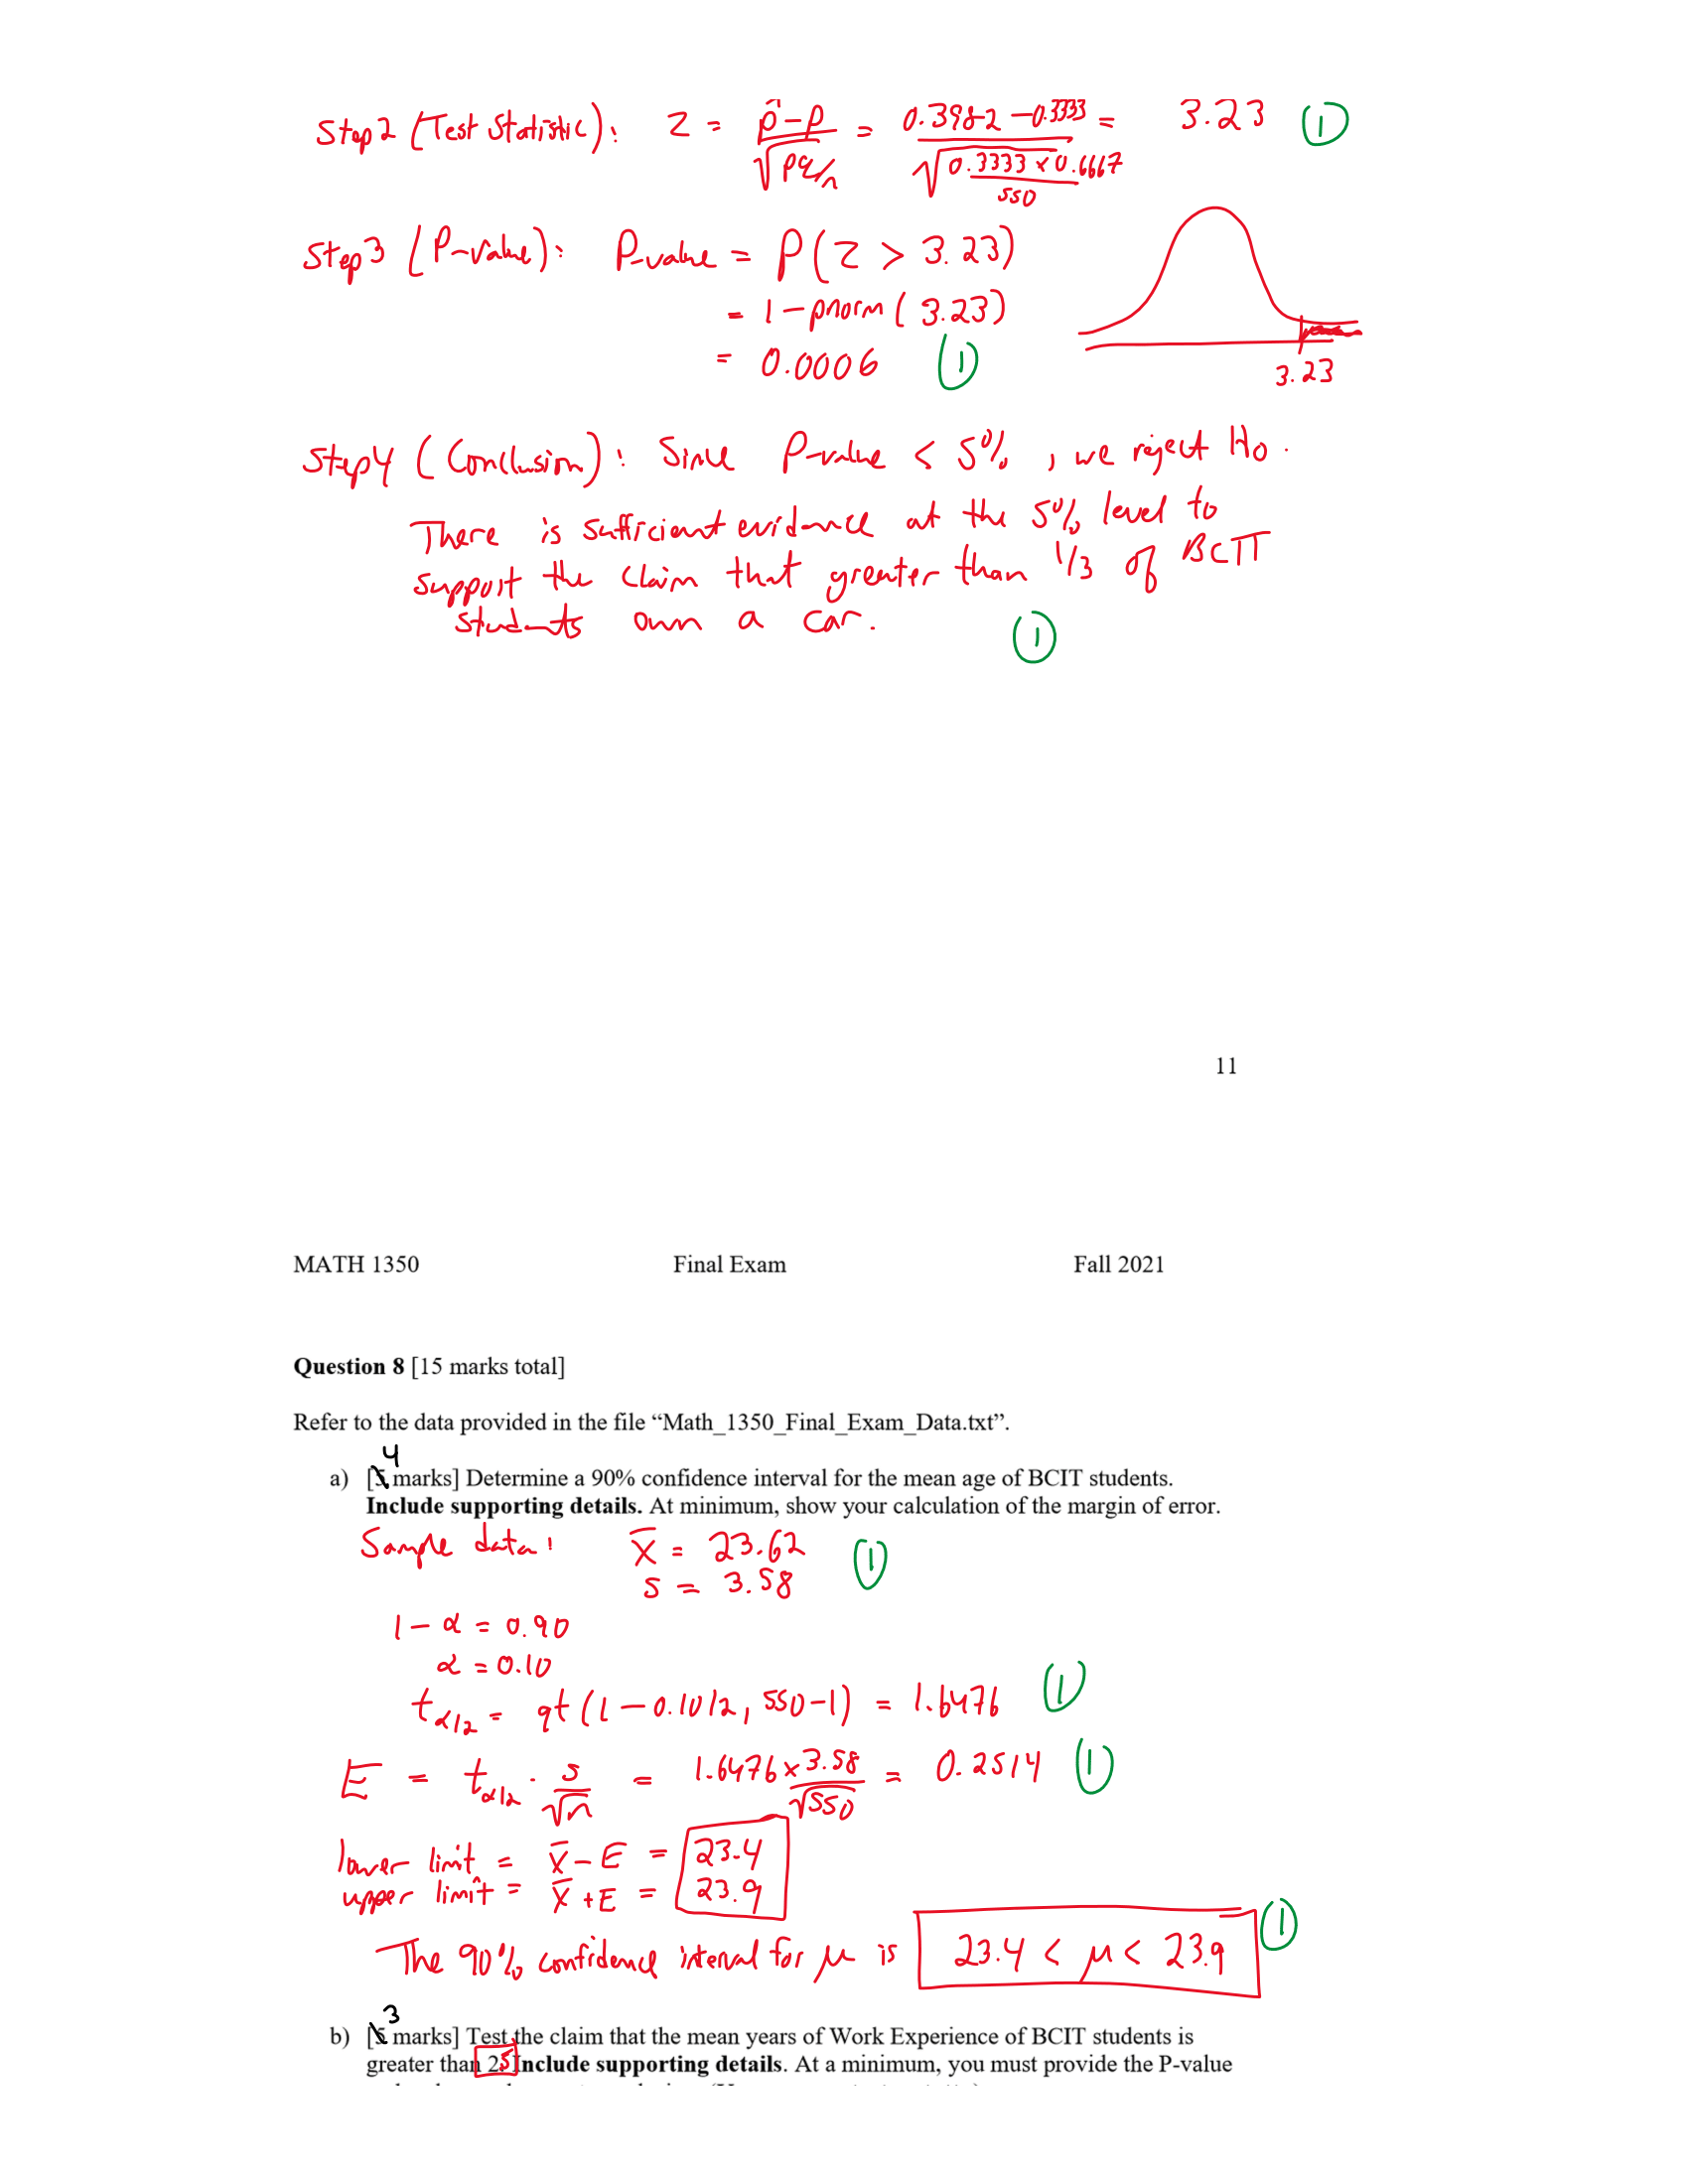 Step 2 (Test Statistic): z = (p̂ - p)/√(pq/n) = (0.3982 - 0.3333)/√((0.3333 × 0.6667)/550) = 3.23 ①
Step 3 (P-value): P-value = P(Z > 3.23)
= 1 - pnorm(3.23)
= 0.0006 ①
3.23
Step 4 (Conclusion): Since P-value < 5%, we reject Ho.
There is sufficient evidence at the 5% level to
support the claim that greater than 1/3 of BCIT
students own a car. ①
11
MATH 1350 Final Exam Fall 2021
Question 8 [15 marks total]
Refer to the data provided in the file “Math_1350_Final_Exam_Data.txt”.
4
a) [5 marks] Determine a 90% confidence interval for the mean age of BCIT students.
Include supporting details. At minimum, show your calculation of the margin of error.
Sample data: x̄ = 23.62 ①
s = 3.58
1 - α = 0.90
α = 0.10
tα/2 = qt(1 - 0.10/2, 550-1) = 1.6476 ①
E = tα/2 · s/√n = 1.6476 × 3.58/√550 = 0.2514 ①
lower limit = x̄ - E = 23.4
upper limit = x̄ + E = 23.9
The 90% confidence interval for μ is 23.4 < μ < 23.9 ①
3
b) [5 marks] Test the claim that the mean years of Work Experience of BCIT students is
greater than 2.5 Include supporting details. At a minimum, you must provide the P-value